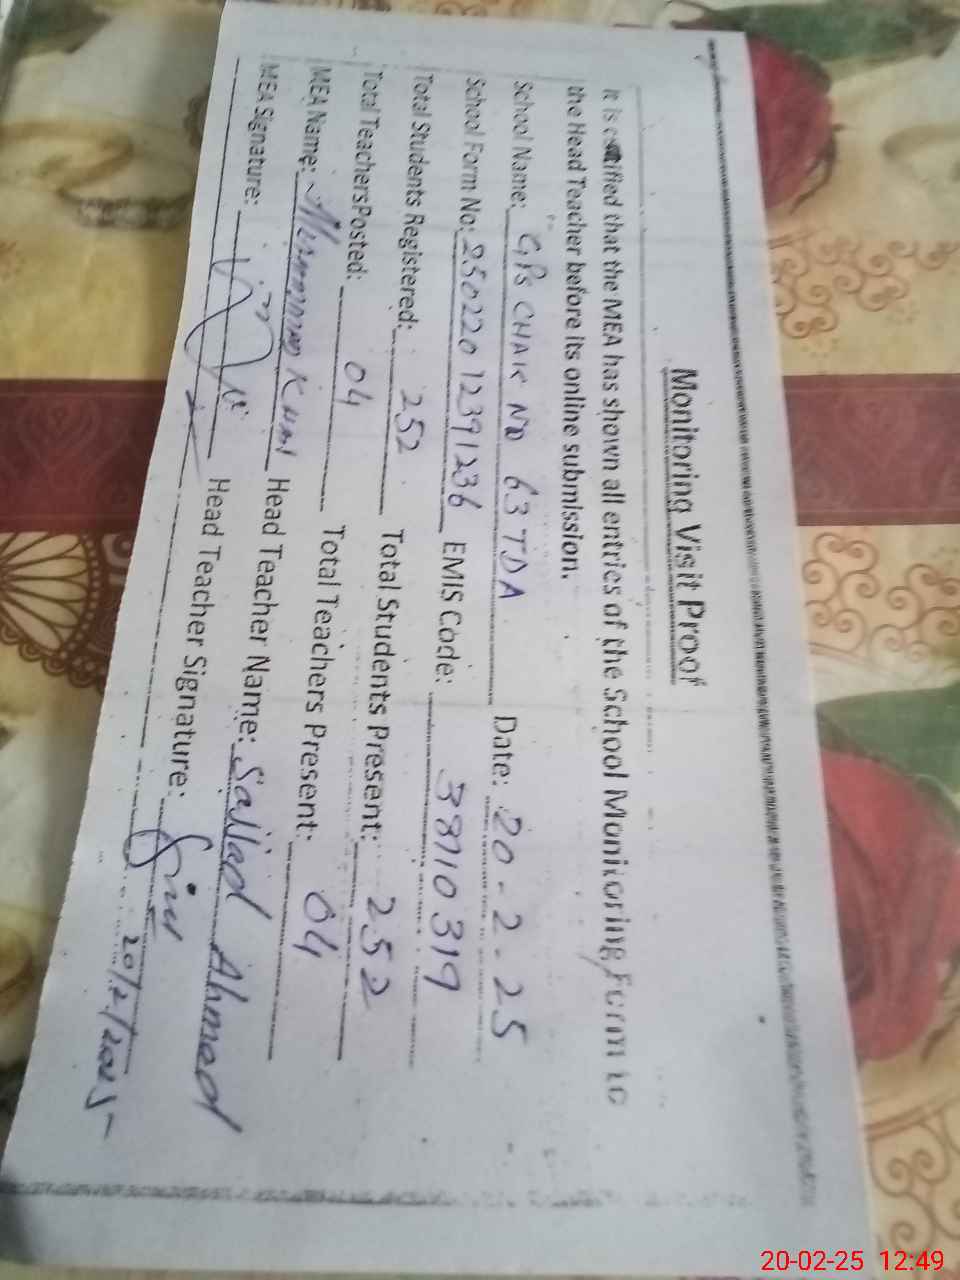 Monitoring Visit Proof
It is certified that the MEA has shown all entries of the School Monitoring Form to
the Head Teacher before its online submission.
School Name: GPS CHAK NO 63 TDA Date: 20-2-25
School Form No: 250220 12391236 EMIS Code: 38710319
Total Students Registered: 252 Total Students Present: 252
Total Teachers Posted: 04 Total Teachers Present: 04
MEA Name: Head Teacher Name: Sajjad Ahmed
MEA Signature: Head Teacher Signature:
20/2/2025
20-02-25 12:49